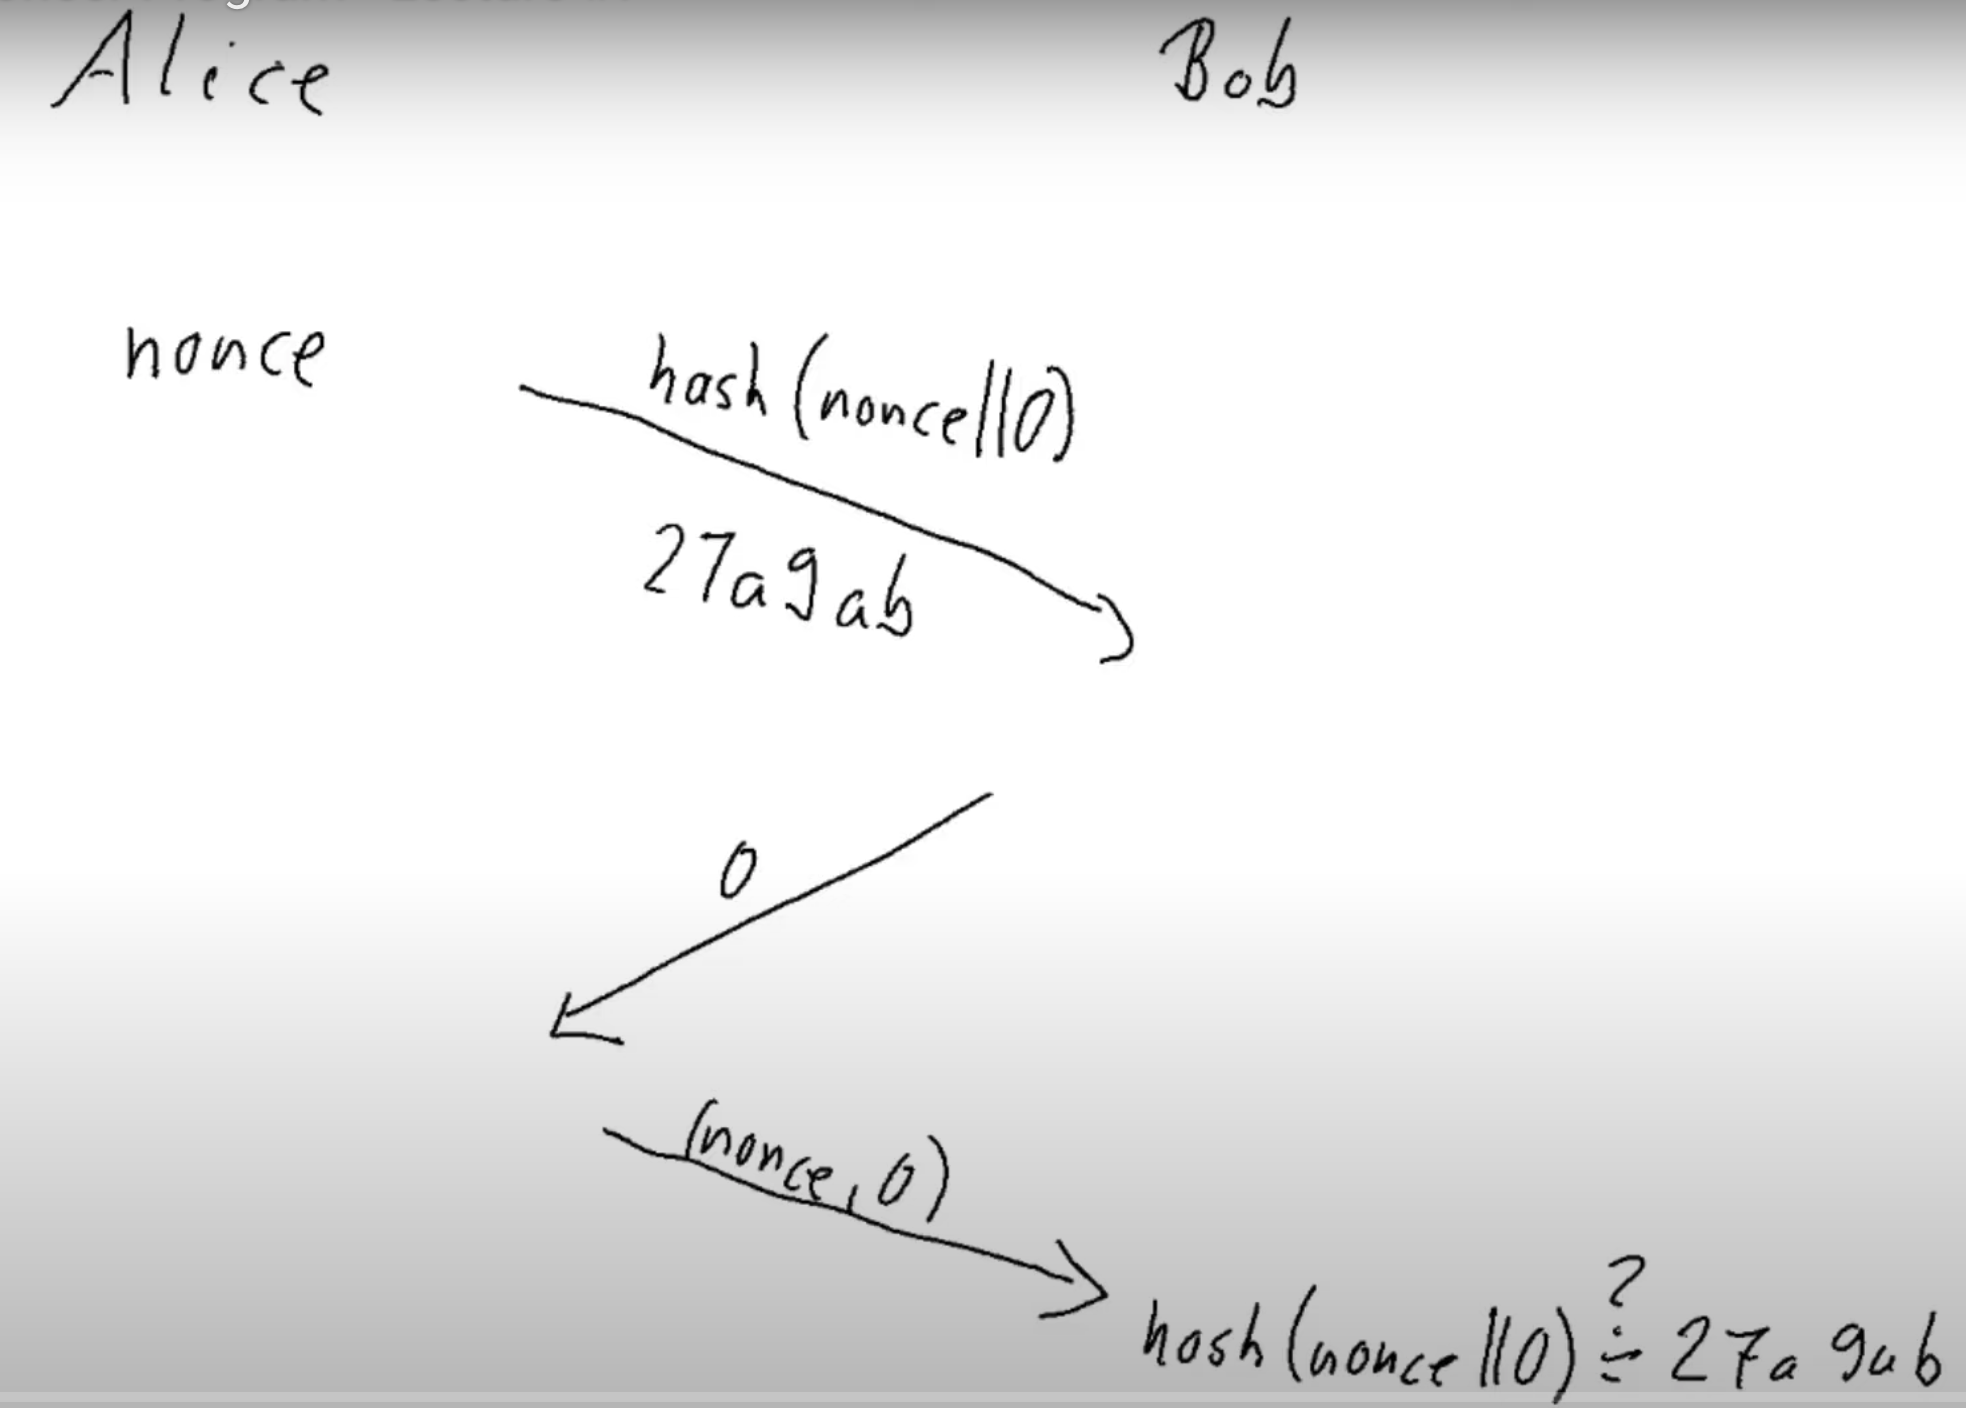 Alice
Bob
nonce
hash(nonce||0)
27a9ab
0
(nonce, 0)
hash(nonce||0) ≟ 27a9ab